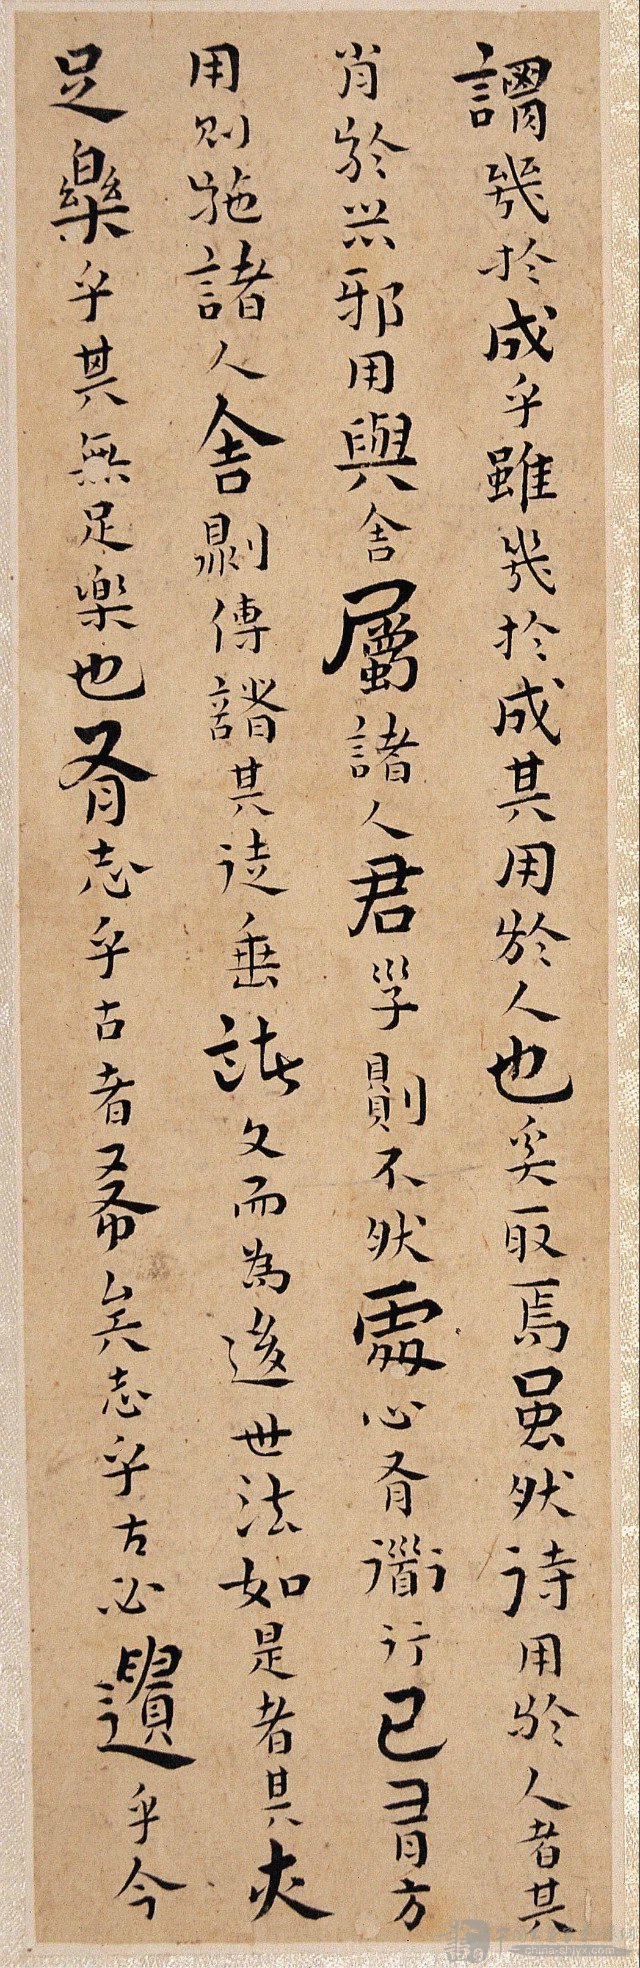 謂幾於成乎雖幾於成其用於人也奚取焉虽然待用於人者其
肖於器邪用與舍屬諸人君子則不然處心有道行己有方
用則施諸人舍則傳諸其徒垂諸文而為後世法如是者其亦
足樂乎其無足樂也有志乎古者希矣志乎古必遺乎今
china-shjyx.com